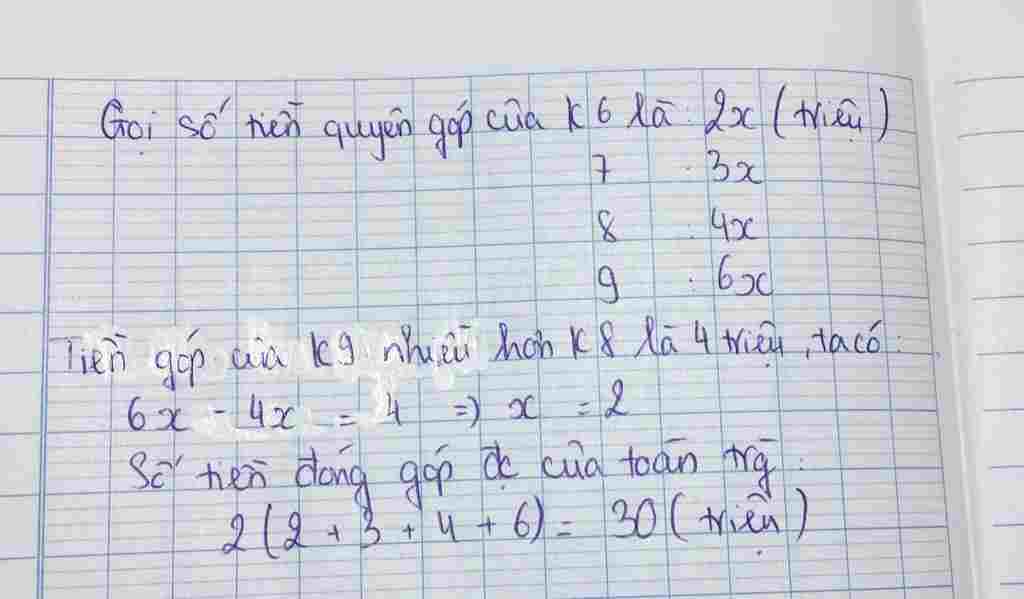 Gọi số tiền quyên góp của K6 là: 2x (triệu)
7 : 3x
8 : 4x
9 : 6x
Tiền góp của K9 nhiều hơn K8 là 4 triệu, ta có:
6x - 4x = 4 => x = 2
Số tiền đóng góp đc của toàn trg:
2(2 + 3 + 4 + 6) = 30 (triệu)